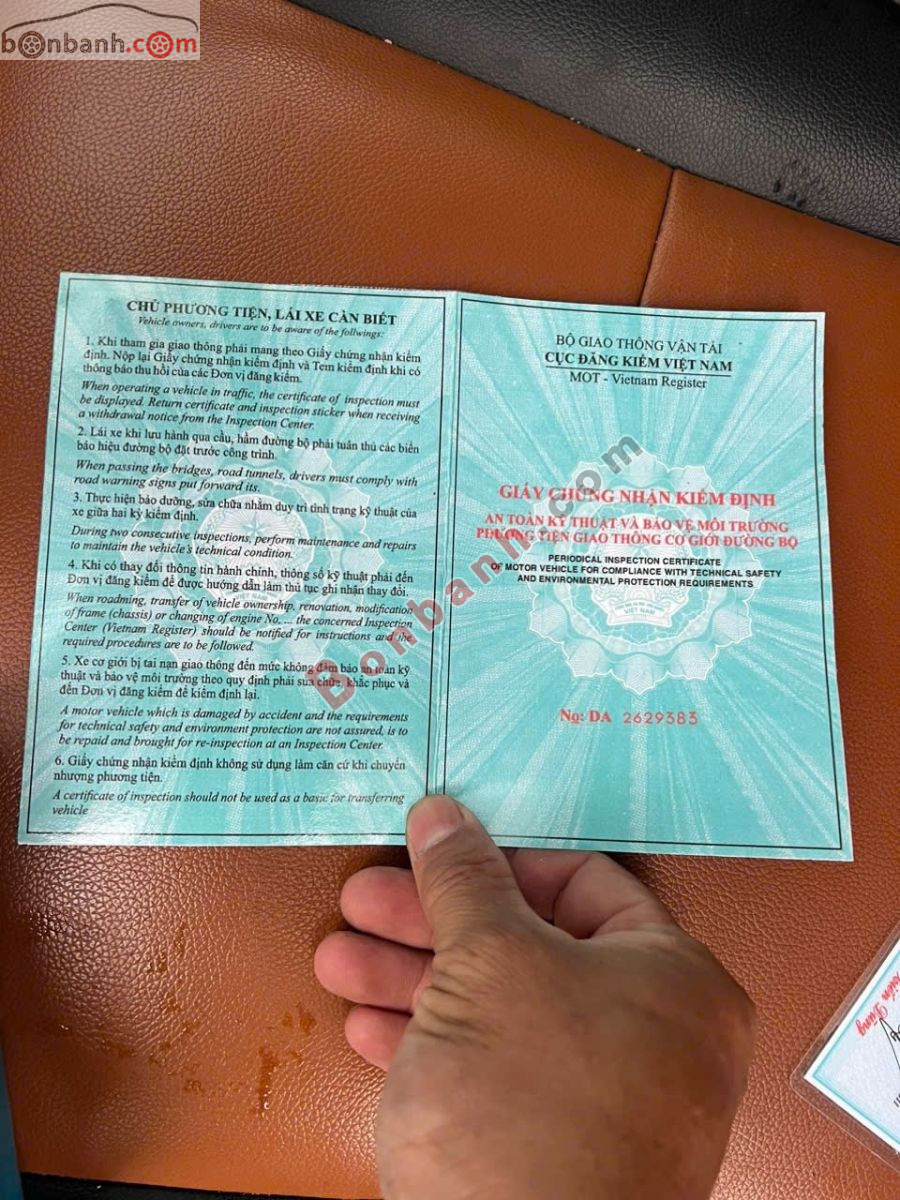 bonbanh.com
CHỦ PHƯƠNG TIỆN, LÁI XE CẦN BIẾT
Vehicle owners, drivers are to be aware of the follwings:
1. Khi tham gia giao thông phải mang theo Giấy chứng nhận kiểm
định. Nộp lại Giấy chứng nhận kiểm định và Tem kiểm định khi có
thông báo thu hồi của các Đơn vị đăng kiểm.
When operating a vehicle in traffic, the certificate of inspection must
be displayed. Return certificate and inspection sticker when receiving
a withdrawal notice from the Inspection Center.
2. Lái xe khi lưu hành qua cầu, hầm đường bộ phải tuân thủ các biển
báo hiệu đường bộ đặt trước công trình.
When passing the bridges, road tunnels, drivers must comply with
road warning signs put forward its.
3. Thực hiện bảo dưỡng, sửa chữa nhằm duy trì tình trạng kỹ thuật của
xe giữa hai kỳ kiểm định.
During two consecutive inspections, perform maintenance and repairs
to maintain the vehicle's technical condition.
4. Khi có thay đổi thông tin hành chính, thông số kỹ thuật phải đến
Đơn vị đăng kiểm để được hướng dẫn làm thủ tục ghi nhận thay đổi.
When roadming, transfer of vehicle ownership, renovation, modification
of frame (chassis) or changing of engine No. ... the concerned Inspection
Center (Vietnam Register) should be notified for instructions and the
required procedures are to be followed.
5. Xe cơ giới bị tai nạn giao thông đến mức không đảm bảo an toàn kỹ
thuật và bảo vệ môi trường theo quy định phải sửa chữa, khắc phục và
đến Đơn vị đăng kiểm để kiểm định lại.
A motor vehicle which is damaged by accident and the requirements
for technical safety and environment protection are not assured, is to
be repaid and brought for re-inspection at an Inspection Center.
6. Giấy chứng nhận kiểm định không sử dụng làm căn cứ khi chuyển
nhượng phương tiện.
A certificate of inspection should not be used as a basic for transferring
vehicle
BỘ GIAO THÔNG VẬN TẢI
CỤC ĐĂNG KIỂM VIỆT NAM
MOT - Vietnam Register
GIẤY CHỨNG NHẬN KIỂM ĐỊNH
AN TOÀN KỸ THUẬT VÀ BẢO VỆ MÔI TRƯỜNG
PHƯƠNG TIỆN GIAO THÔNG CƠ GIỚI ĐƯỜNG BỘ
PERIODICAL INSPECTION CERTIFICATE
OF MOTOR VEHICLE FOR COMPLIANCE WITH TECHNICAL SAFETY
AND ENVIRONMENTAL PROTECTION REQUIREMENTS
VIỆT NAM
No: DA 2629383
Bonbanh.com